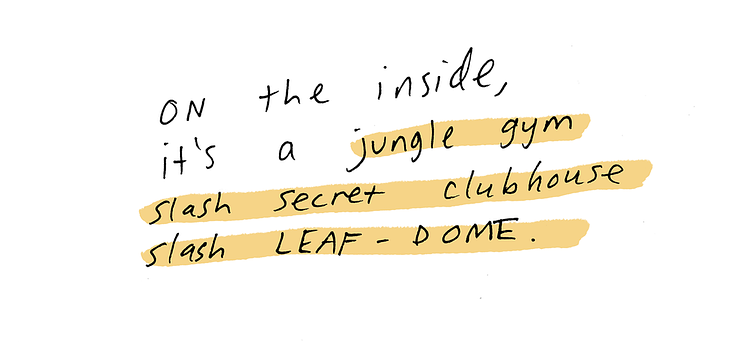 ON the inside,
it's a jungle gym
slash secret clubhouse
slash LEAF-DOME.